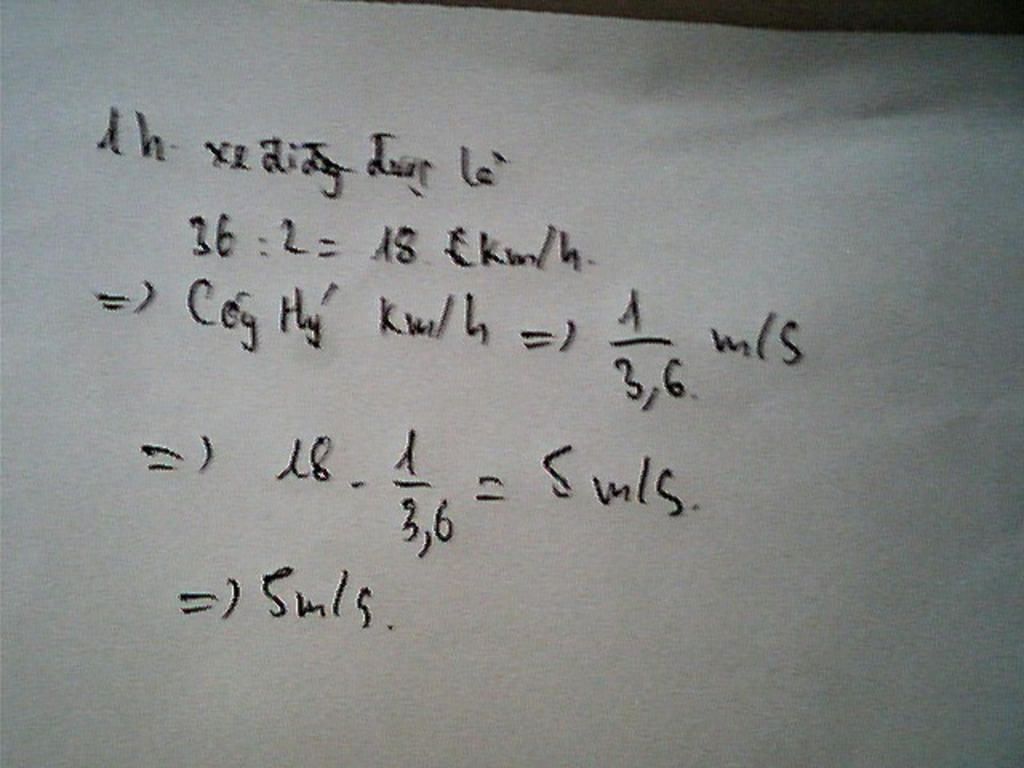 1h xe đi được là
36 : 2 = 18 km/h.
=> Công thức km/h => 1/3,6 m/s
=> 18 . 1/3,6 = 5 m/s.
=> 5m/s.